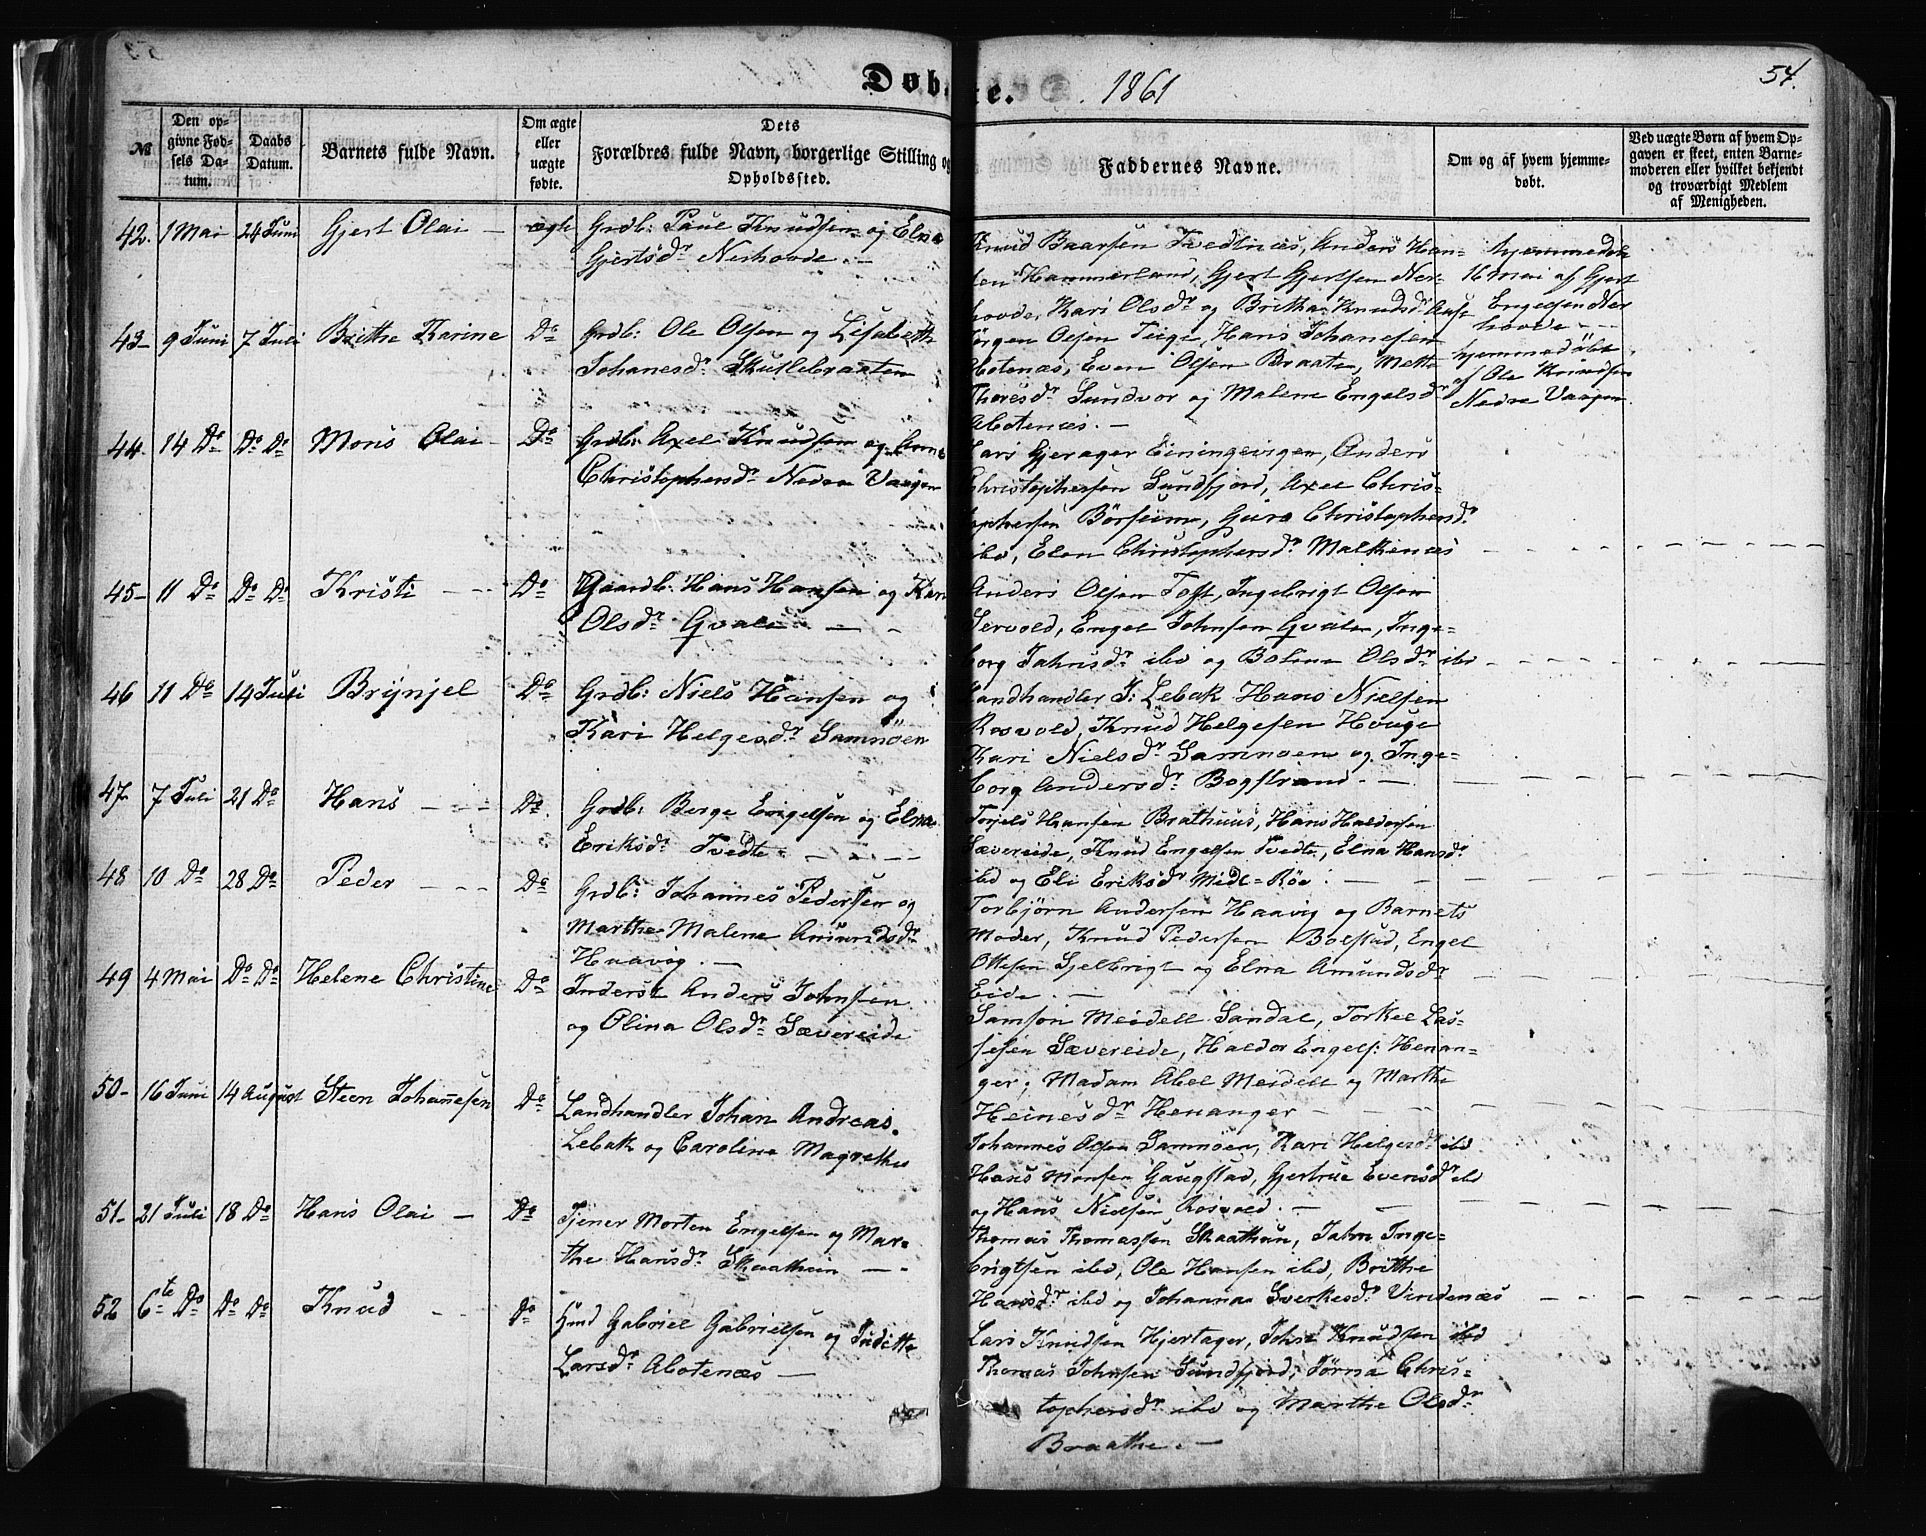 Døbte. 1861
54.
№
Den opgivne Fødsels Datum.
Daabs Datum.
Barnets fulde Navn.
Om ægte eller uægte fødte.
Dets Forældres fulde Navn, borgerlige Stilling og Opholdssted.
Faddernes Navne.
Om og af hvem hjemmedøbt.
Ved uægte Børn af hvem Opgaven er skeet, enten Barnemoderen eller hvilket bekjendt og troværdigt Medlem af Menigheden.
42. 1 Mai 24 Juni Gjert Olai — ægte Grdb: Paul Knudsen og Elna
Gjertsdr Nerhovde. —
Knud Baarsen Tvedtnæs, Anders Han-
sen Hammerland, Gjert Gjertsen Ner-
hovde, Kari Olsdr og Britha Knudsdr Aase
hjemmedøbt
16 Mai af Gjert
Engelsen Ner
hovde - -
43- 9 Juni 7 Juli Brithe Karine Do Grdb: Ole Olsen og Lisabeth
Johanesdr Skutlebraaten
Jørgen Olsen Teige, Hans Johanesen
Abotenæs, Even Olsen Braate, Mette
Thoresdr Sundvor og Malene Engelsdr
Abotenæs. —
hjemmedøbt
af Ole Knudsen
Nedre Vaagen
44. 14 Do Do Do Mons Olai - Do Grdb: Axel Knudsen og Anne
Christophersdr Nedre Vaagen
Lars Gjerager Einingevigen, Anders
Christophersen Sundfjord, Axel Chris-
tophersen Børseim, Guro Christophersdr
ibd, Elen Christophersdr Malkenæs
45- 11 Do Do Do Kristi - - Do Gaardb: Hans Hansen og Kari
Olsdr Qvale — -
Anders Olsen Toft, Ingebrigt Olsen
Servold, Engel Johnsen Qvale, Inge-
borg Jahnsdr ibd og Bolina Olsdr ibd
46 11 Do 14 Juli Brynjel Do Grdb: Niels Hansen og
Kari Helgesdr Samnøen
Landhandler J: Lebak Hans Nielsen
Rosvold, Knud Helgesen Houge
Kari Nielsdr Samnøen og Inge-
borg Andersdr Bogstrand. —
47- 7 Juli 21 Do Hans - - - Do. Grdb: Berge Engelsen og Elna
Eriksdr Tvedte - - - -
Torjels Hansen Brathuus, Hans Haldorsen
Sævereide, Knud Engelsen Tvedte, Elna Hansdr
ibd og Eli Eriksdr Midt-Røe. —
48 10 Do 28 Do Peder - - - Do Grdb: Johannes Pedersen og
Marthe Malene Amundsdr
Haavig. —
Torbjørn Andersen Haavig og Barnets
Moder, Knud Pedersen Bolstad, Engel
Ottesen Gjelbrigt og Elna Amundsdr
Eide. —
49 4 Mai Do Do Helene Christine Do Inderst Anders Johnsen
og Olina Olsdr Sævereide
Samson Meidell Sandal, Torkel Las-
sesen Sævereide, Haldor Engels: Henan-
ger, Madam Abel Meidell og Marthe
Heinesdr Henanger - -
50- 16 Juni 14 August Steen Johannesen Do Landhandler Johan Andreas.
Lebak og Caroline Magrethe
Johannes Olsen Samnøen, Kari Helgesdr ibd
Hans Monsen Gaugstad, Gjertrue Evensdr ibd
og Hans Nielsen Rosvold. —
51- 21 Juli 18 Do Hans Olai — Do Tjener Morten Engelsen og Mar-
the Hansdr Skaathun — -
Thomas Thomassen Skaathun, Jahn Inge-
brigtsen ibd, Ole Hansen ibd, Brithe
Hansdr ibd og Johanna Sverkesdr Vindenæs
52 6te Do Do Do Knud - - Do Hmd Gabriel Gabrielsen og Juditte
Larsdr Abotenæs —
Lars Knudsen Hjertager, Johs Knudsen ibd
Thomas Johnsen Sundfjord, Jørna Chris-
tophersdr ibd og Marthe Olsdr
Braathe. —